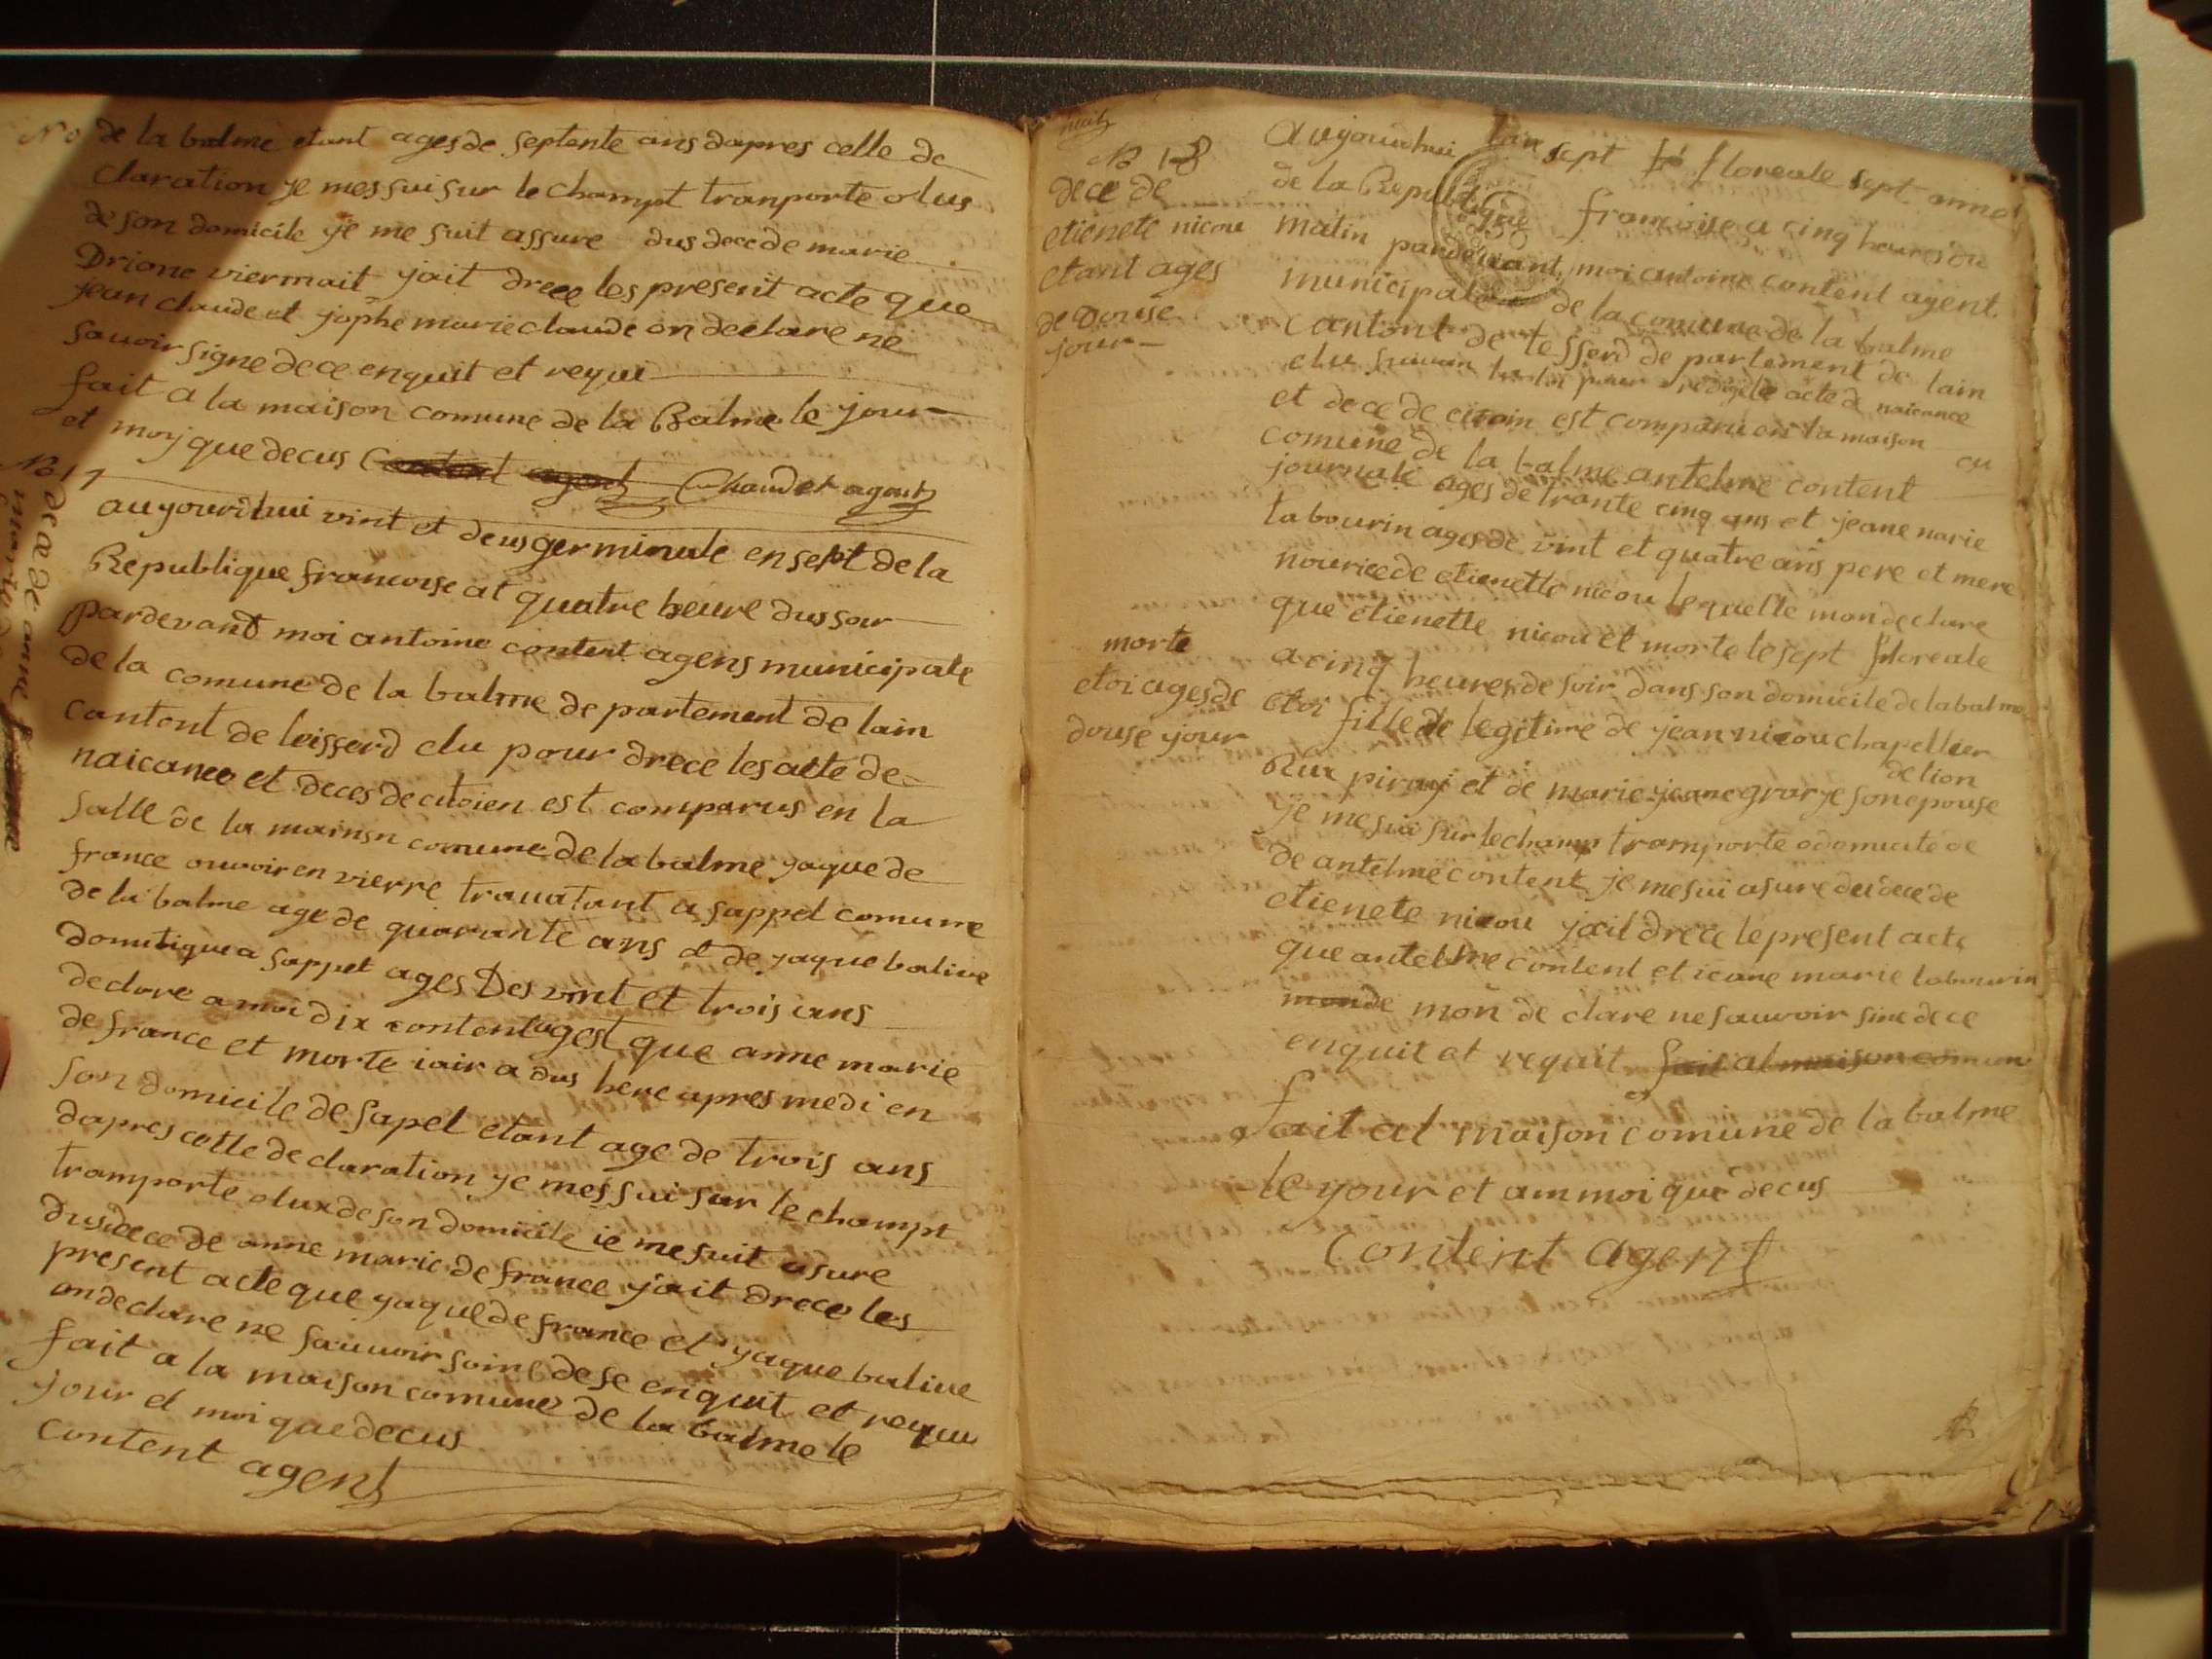 No de la balme etant ages de septante ans dapres celle de
claration je mes sui sur le champt tranporte olus
de son domicile je me suit assure dus decede marie
Drione viermait jait drece les present acte que
jean claude et josphe marie claude on declare ne
savoir signe dece enquit et requi
fait a la maison comune de la Balme le jour
et moy que decus Chaudet agent
No 17
dece de anne
marie
aujourdhui vint et deus germinale en sept de la
Republique francoise at quatre heure dus soir
pardevant moi antoine content agens municipale
de la comune de la balme departement de lain
cantont de leisserd elu pour drece les acte de
naicance et deces de citoien est comparus en la
salle de la maison comune de la balme jaque de
france ouvoir en vierre travatant a sappel comune
de la balme age de quarante ans et de jaque balive
domitique a sappet ages Des vint et trois ans
declare a moi dix content agest que anne marie
de france et morte iair a dus here apres medi en
son domicile de sapel etant age de trois ans
dapres cette declaration je mes sui sur le champt
tramporte olux de son domicile ie me suit asure
dus dece de anne marie de france jait drece les
present acte que jaque de france et jaque balive
on declare ne sauvoir soine dese enquit et requi
fait a la maison comune de la balme le
jour et moi que decus
content agent
nuit
No 18
dece de
etienete nicou
etant ages
de douse
jour
aujourdhui lan sept floreale sept anne
de la Republique francoise a cinq heures du
matin pardevant moi antoine content agent
municipale de la comune de la balme
cantont de lesserd departement de lain
elu suivan la loi pour redige le acte de naicance
et dece de citoien est comparu en la maison
comune de la balme antelme content ou
journale ages de trante cinq ans et jeane marie
labourin ages de vint et quatre ans pere et mere
nourice de etienette nicou lequelle mon declare
que etienette nicou et morte le sept floreale
a cinq heures de soir dans son domicile de la balme
morte
etoi ages de
douse jour
etoi fille de legitime de jean nicou chapellier
de lion
Rue piray et de marie jeane grarje son epouse
je me sui sur le champ tramporte o domicile de
de antelme content je me sui asure dus dece de
etienete nicou jait drece le present acte
que antelme content et ieane marie labourin
monde mon de clare ne sauvoir sine dece
enquit et requit fait al maison comune
fait at maison comune de la balme
le your et am moi que decus
content agent